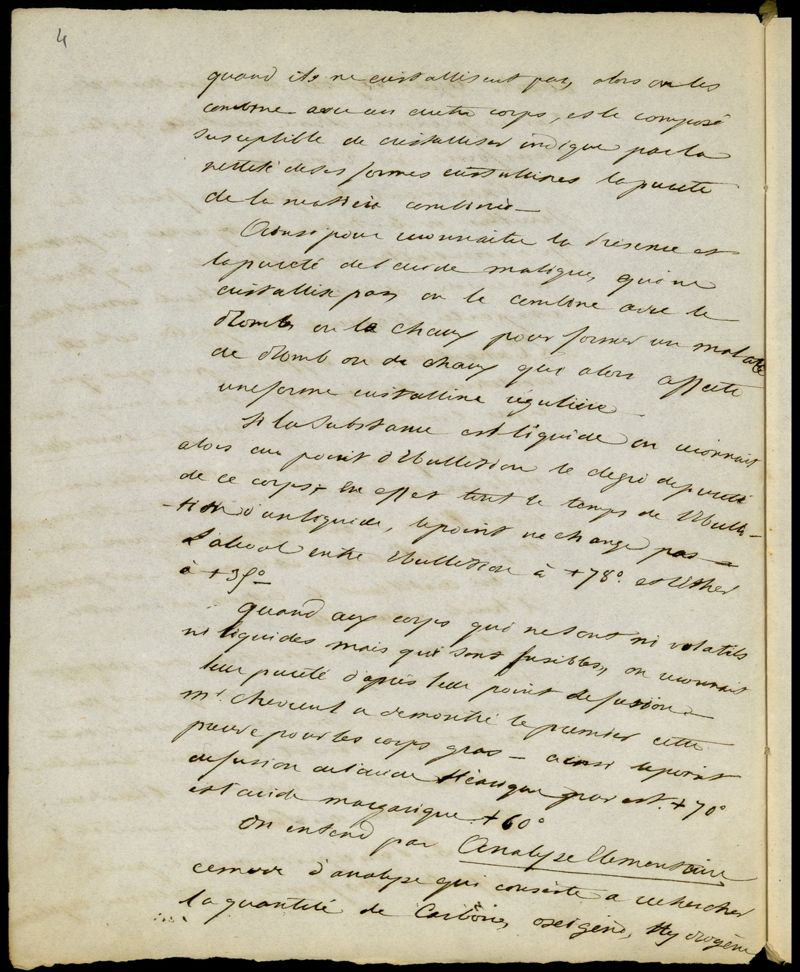 4
quand ils ne cristallisent pas, alors on les
combine avec un autre corps, et le composé
susceptible de cristalliser indique par la
netteté de ses formes cristallines la pureté
de la matière combinée
Ainsi pour reconnaitre la présence et
la pureté de l'acide malique, qui ne
cristallise pas on le combine avec le
Plomb, ou la chaux pour former un malate
de Plomb ou de chaux qui alors affecte
une forme cristalline régulière
Si la substance est liquide on reconnait
alors au point d'Ebullition le degré de pureté
de ce corps, En effet tout le temps de l'Ebulli-
-tion d'un liquide, le point ne change pas
L'alcool entre Ebullition à +78° et l'Ether
à +35°
Quand aux corps qui ne sont ni volatils
ni liquides mais qui sont fusibles, on reconnait
leur pureté d'après leur point de fusion
mr. Chevreul a démontré le premier cette
pour les corps gras — ainsi le point
de fusion de l'acide Stéarique pur est +70°
et l'acide margarique +60°
On entend par Analyse Elementaire
ce mode d'analyse qui consiste a rechercher
la quantité de Carbone, oxigène, Hydrogène